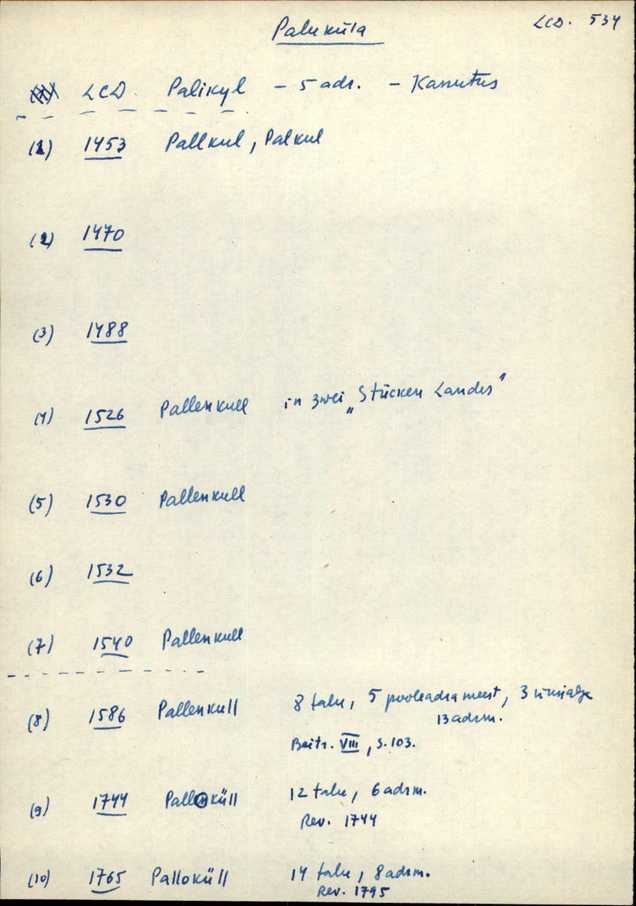 Paluküla LCD. 534
LCD Palikyl - 5 adr. - Kanutus
(1) 1453 Pallkul, Palkul
(2) 1470
(3) 1488
(4) 1526 Pallenkull in zwei „Stücken Landes"
(5) 1530 Pallenkull
(6) 1532
(7) 1540 Pallenkull
(8) 1586 Pallenkull 8 talu, 5 pooleadrameest, 3
13 adrm.
Beitr. VIII, S. 103.
(9) 1744 Palloküll 12 talu, 6 adrm.
Rev. 1744
(10) 1765 Palloküll 14 talu, 8 adrm.
Rev. 1795